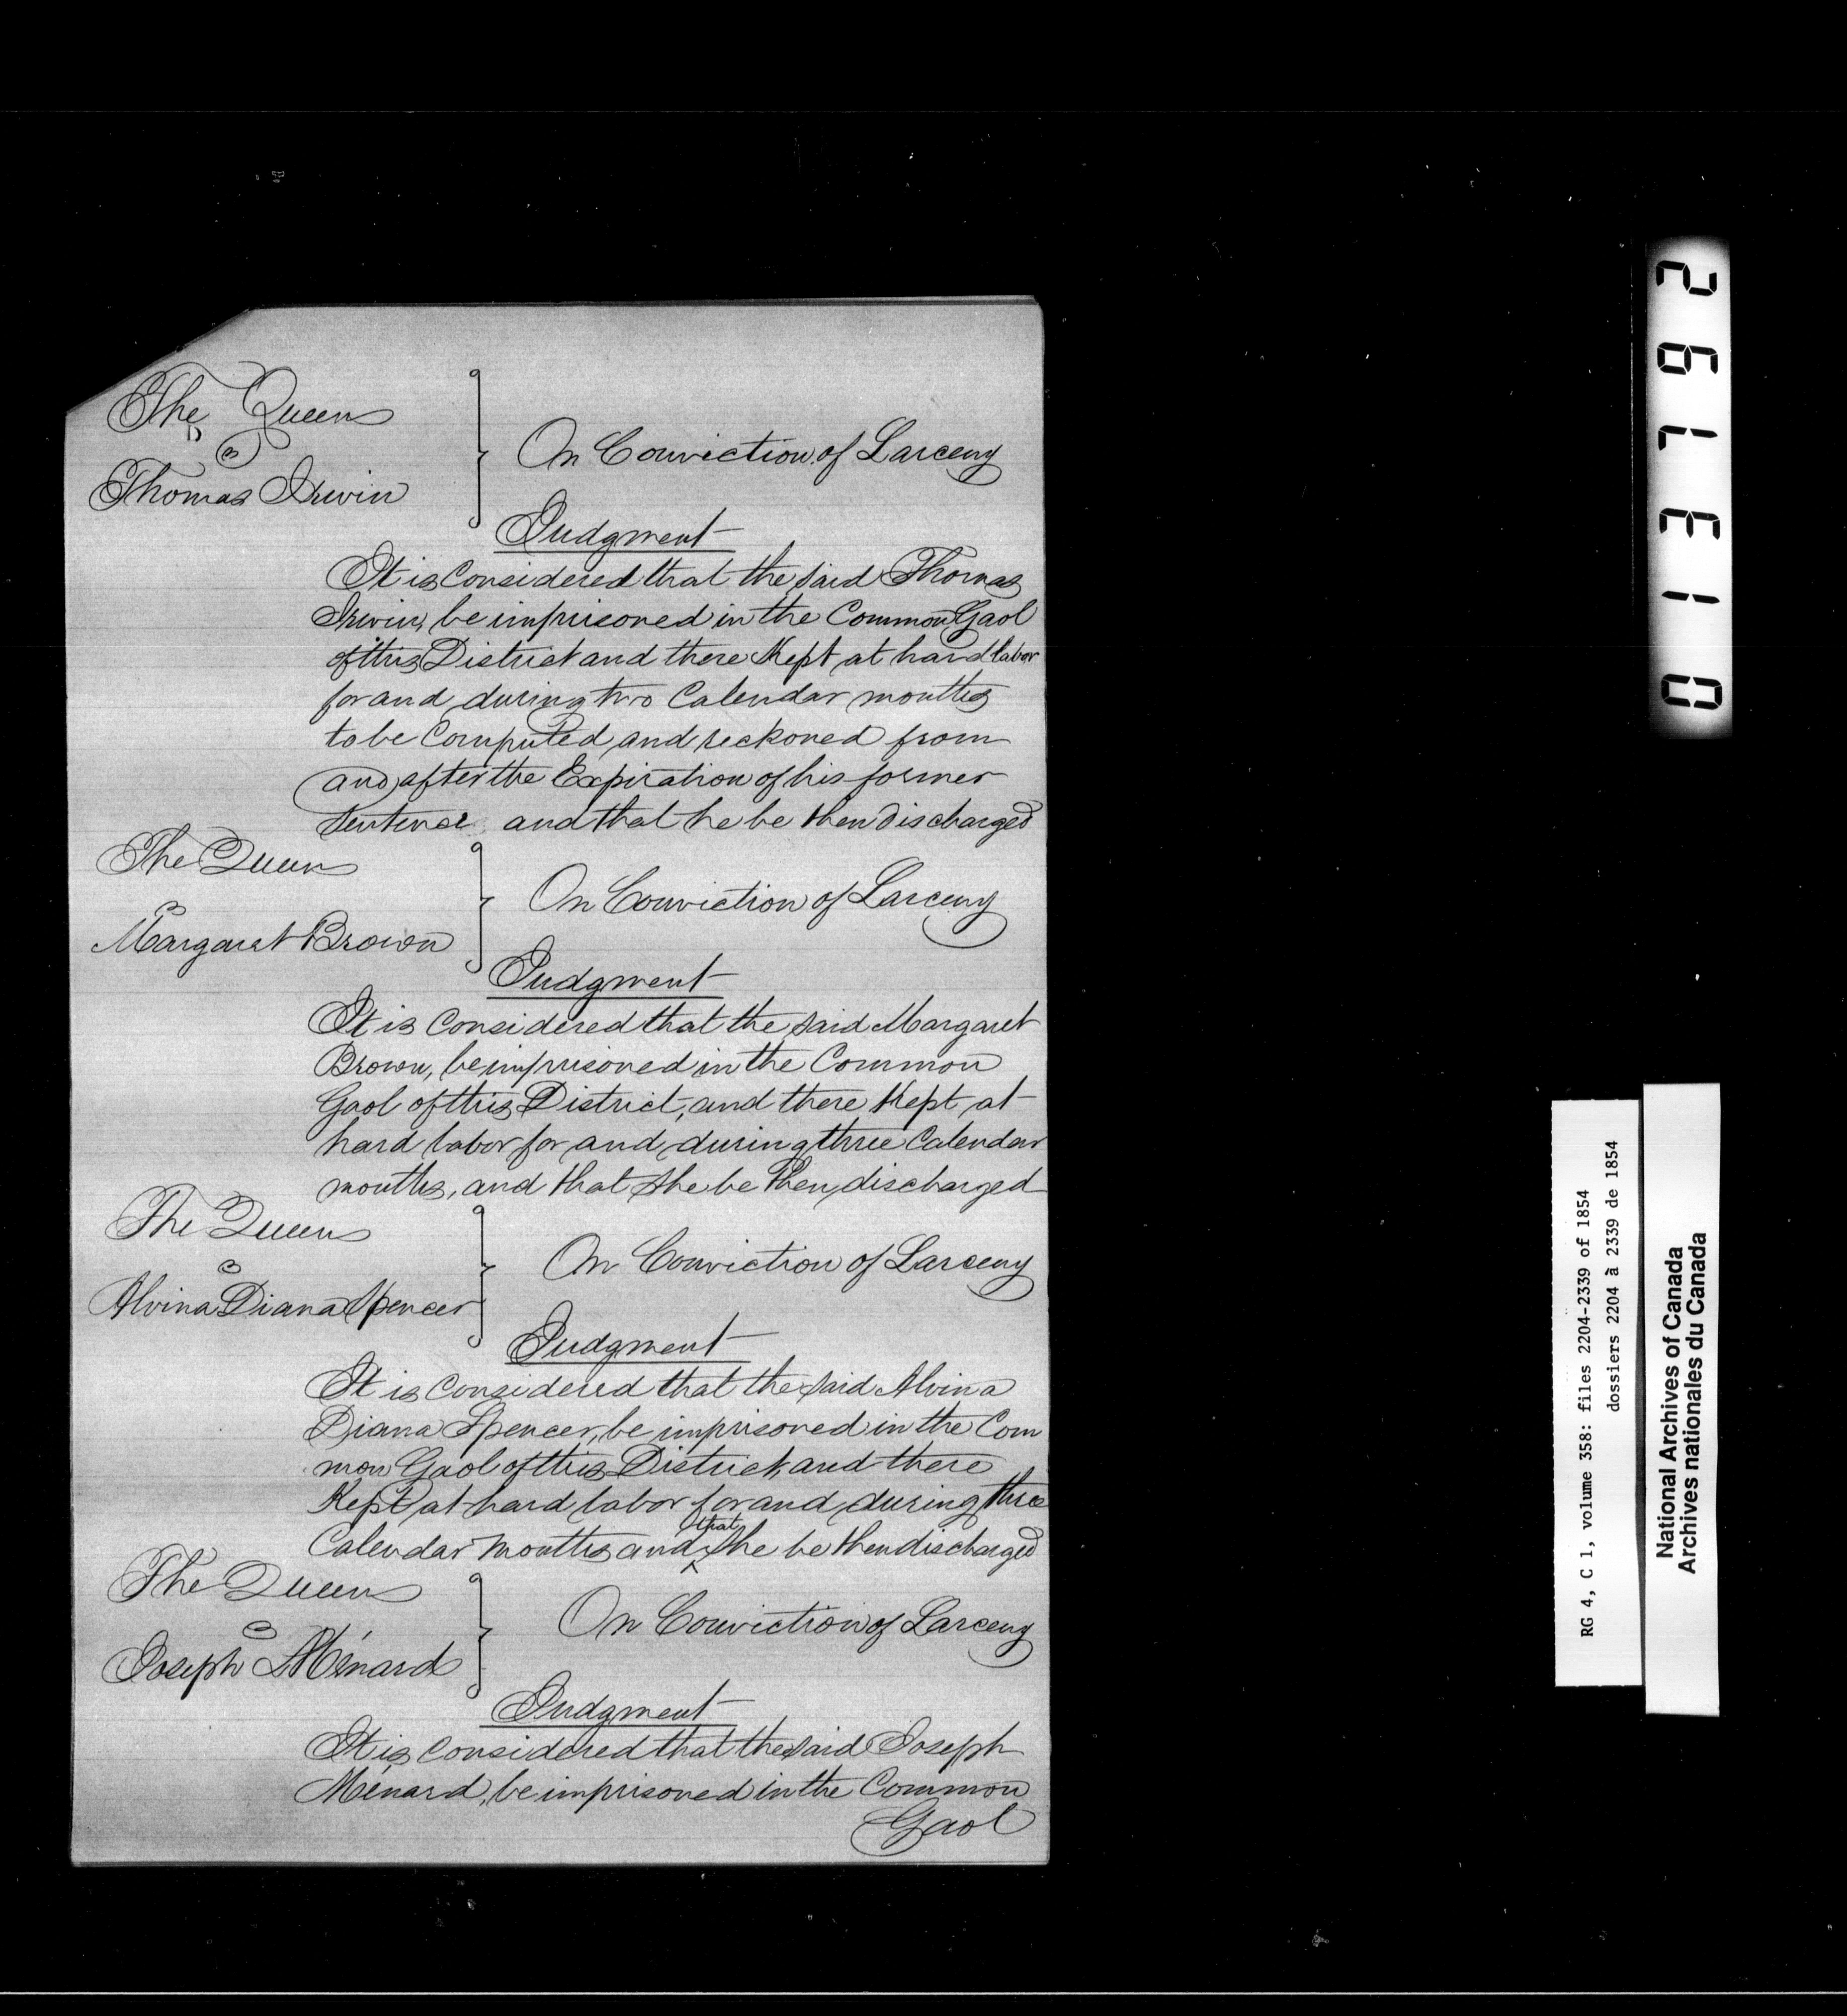 The Queen
Thomas Irwin
On Conviction of Larceny
Judgment
It is Considered that the said Thomas
Irwin, be imprisoned in the Common Gaol
of this District and there Kept at hard labor
for and during two Calendar months
to be Computed and reckoned from
and after the Expiration of his former
Sentence and that he be then discharged
The Queen
Margaret Brown
On Conviction of Larceny
Judgment
It is Considered that the said Margaret
Brown, be imprisoned in the Common
Gaol of this District, and there Kept at
hard labor for and during three Calendar
months, and that she be then discharged
The Queen
Alvina Diana Spencer
On Conviction of Larceny
Judgment
It is Considered that the said Alvina
Diana Spencer, be imprisoned in the Com
mon Gaol of this District, and there
Kept at hard labor for and during three
Calendar months and that she be then discharged
The Queen
Joseph Ménard
On Conviction of Larceny
Judgment
It is Considered that the said Joseph
Ménard, be imprisoned in the Common
Gaol
013192
RG 4, C 1, volume 358: files 2204-2339 of 1854
dossiers 2204 à 2339 de 1854
National Archives of Canada
Archives nationales du Canada